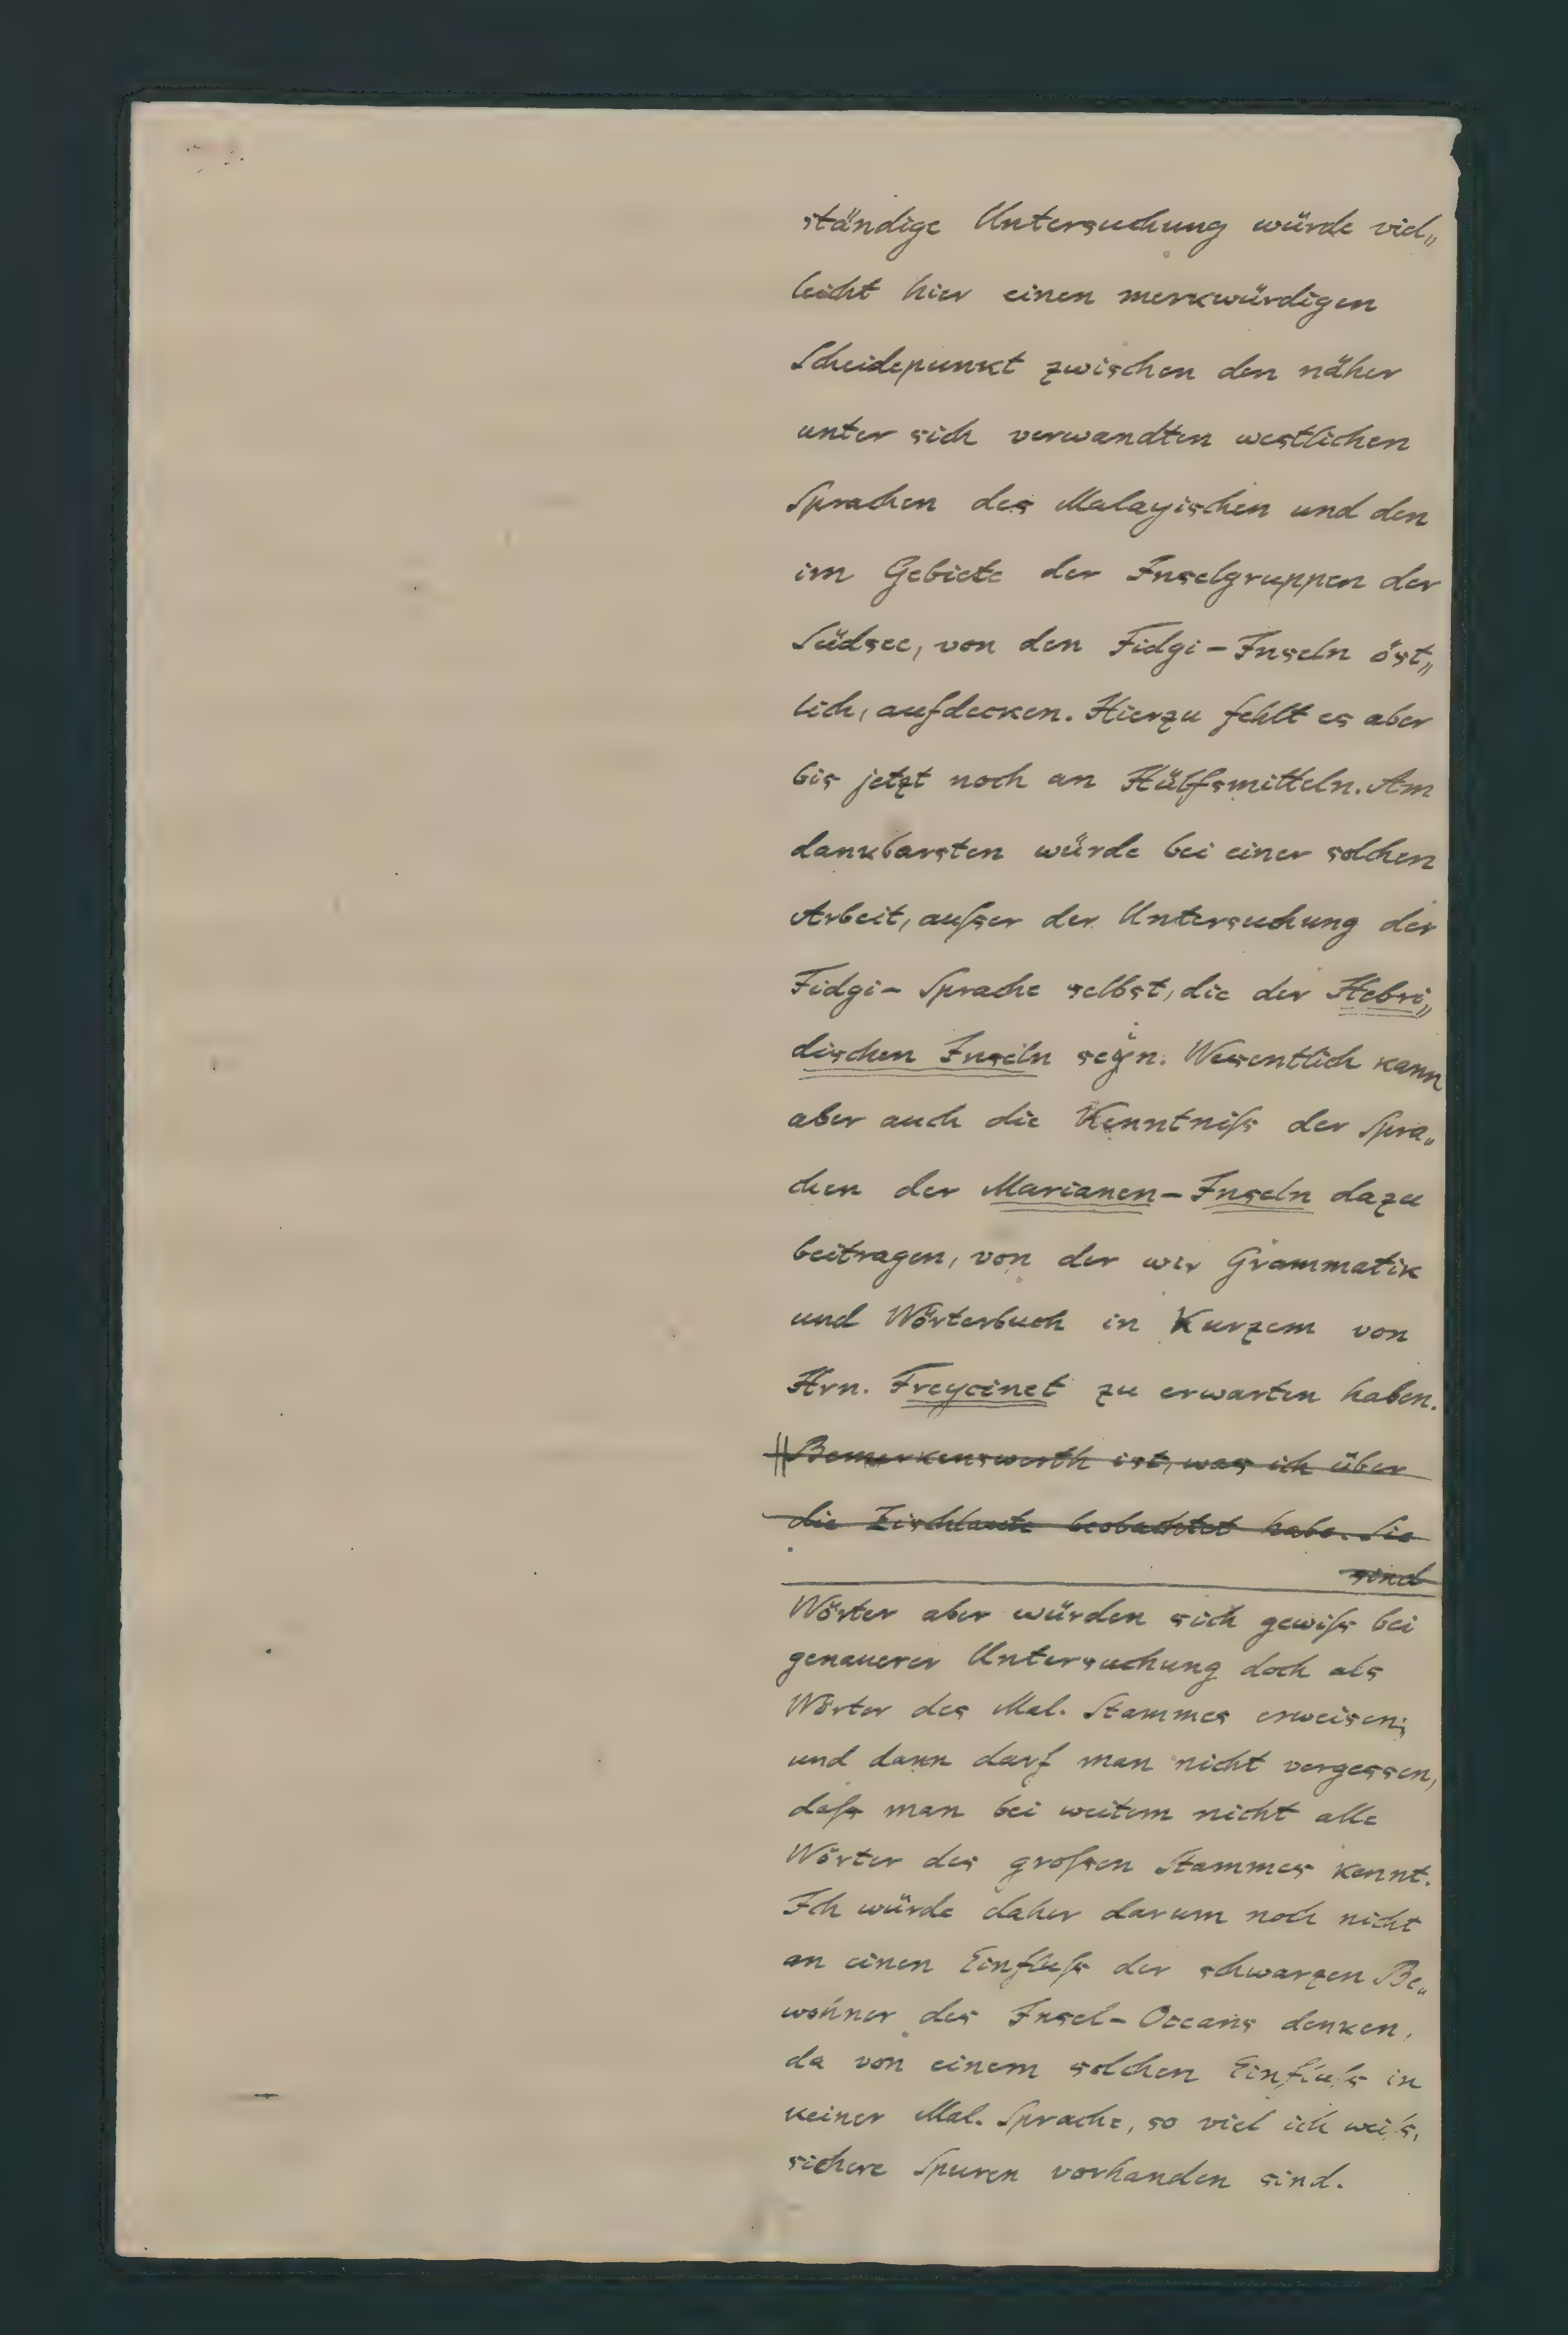 ständige Untersuchung würde viel„
leicht hier einen merkwürdigen
Scheidepunkt zwischen den näher
unter sich verwandten westlichen
Sprachen des Malayischen und den
im Gebiete der Inselgruppen der
Südsee, von den Fidgi-Inseln öst„
lich, aufdecken. Hierzu fehlt es aber
bis jetzt noch an Hülfsmitteln. Am
dankbarsten würde bei einer solchen
Arbeit, außer der Untersuchung der
Fidgi-Sprache selbst, die der Hebri„
dischen Inseln seyn. Wesentlich kann
aber auch die Kenntniß der Spra„
chen der Marianen-Inseln dazu
beitragen, von der wir Grammatik
und Wörterbuch in Kurzem von
Hrn. Freycinet zu erwarten haben.
Bemerkenswerth ist, was ich über
die Zischlaute beobachtet habe. Sie
sind
Wörter aber würden sich gewiß bei
genauerer Untersuchung doch als
Wörter des Mal. Stammes erweisen;
und dann darf man nicht vergessen,
daß man bei weitem nicht alle
Wörter des großen Stammes kennt.
Ich würde daher darum noch nicht
an einen Einfluß der schwarzen Be„
wohner des Insel-Oceans denken,
da von einem solchen Einfluß in
keiner Mal. Sprache, so viel ich weiß,
sichere Spuren vorhanden sind.